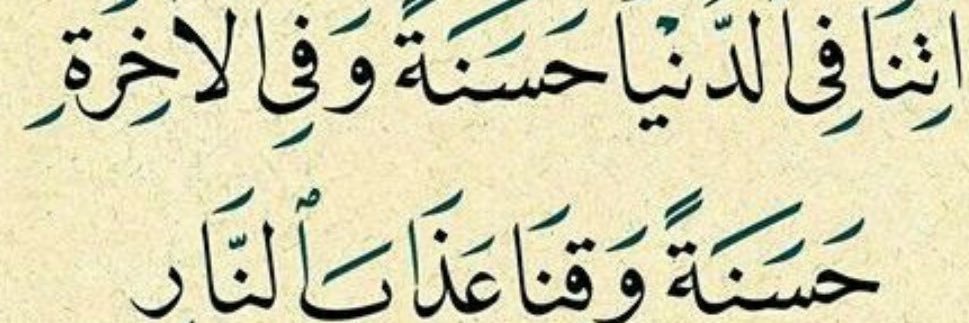 اتِنَا فِى الدُّنْيَا حَسَنَةً وَ فِى الاخِرَةِ
حَسَنَةً وَ قِنَا عَذَابَ ٱلنَّارِ